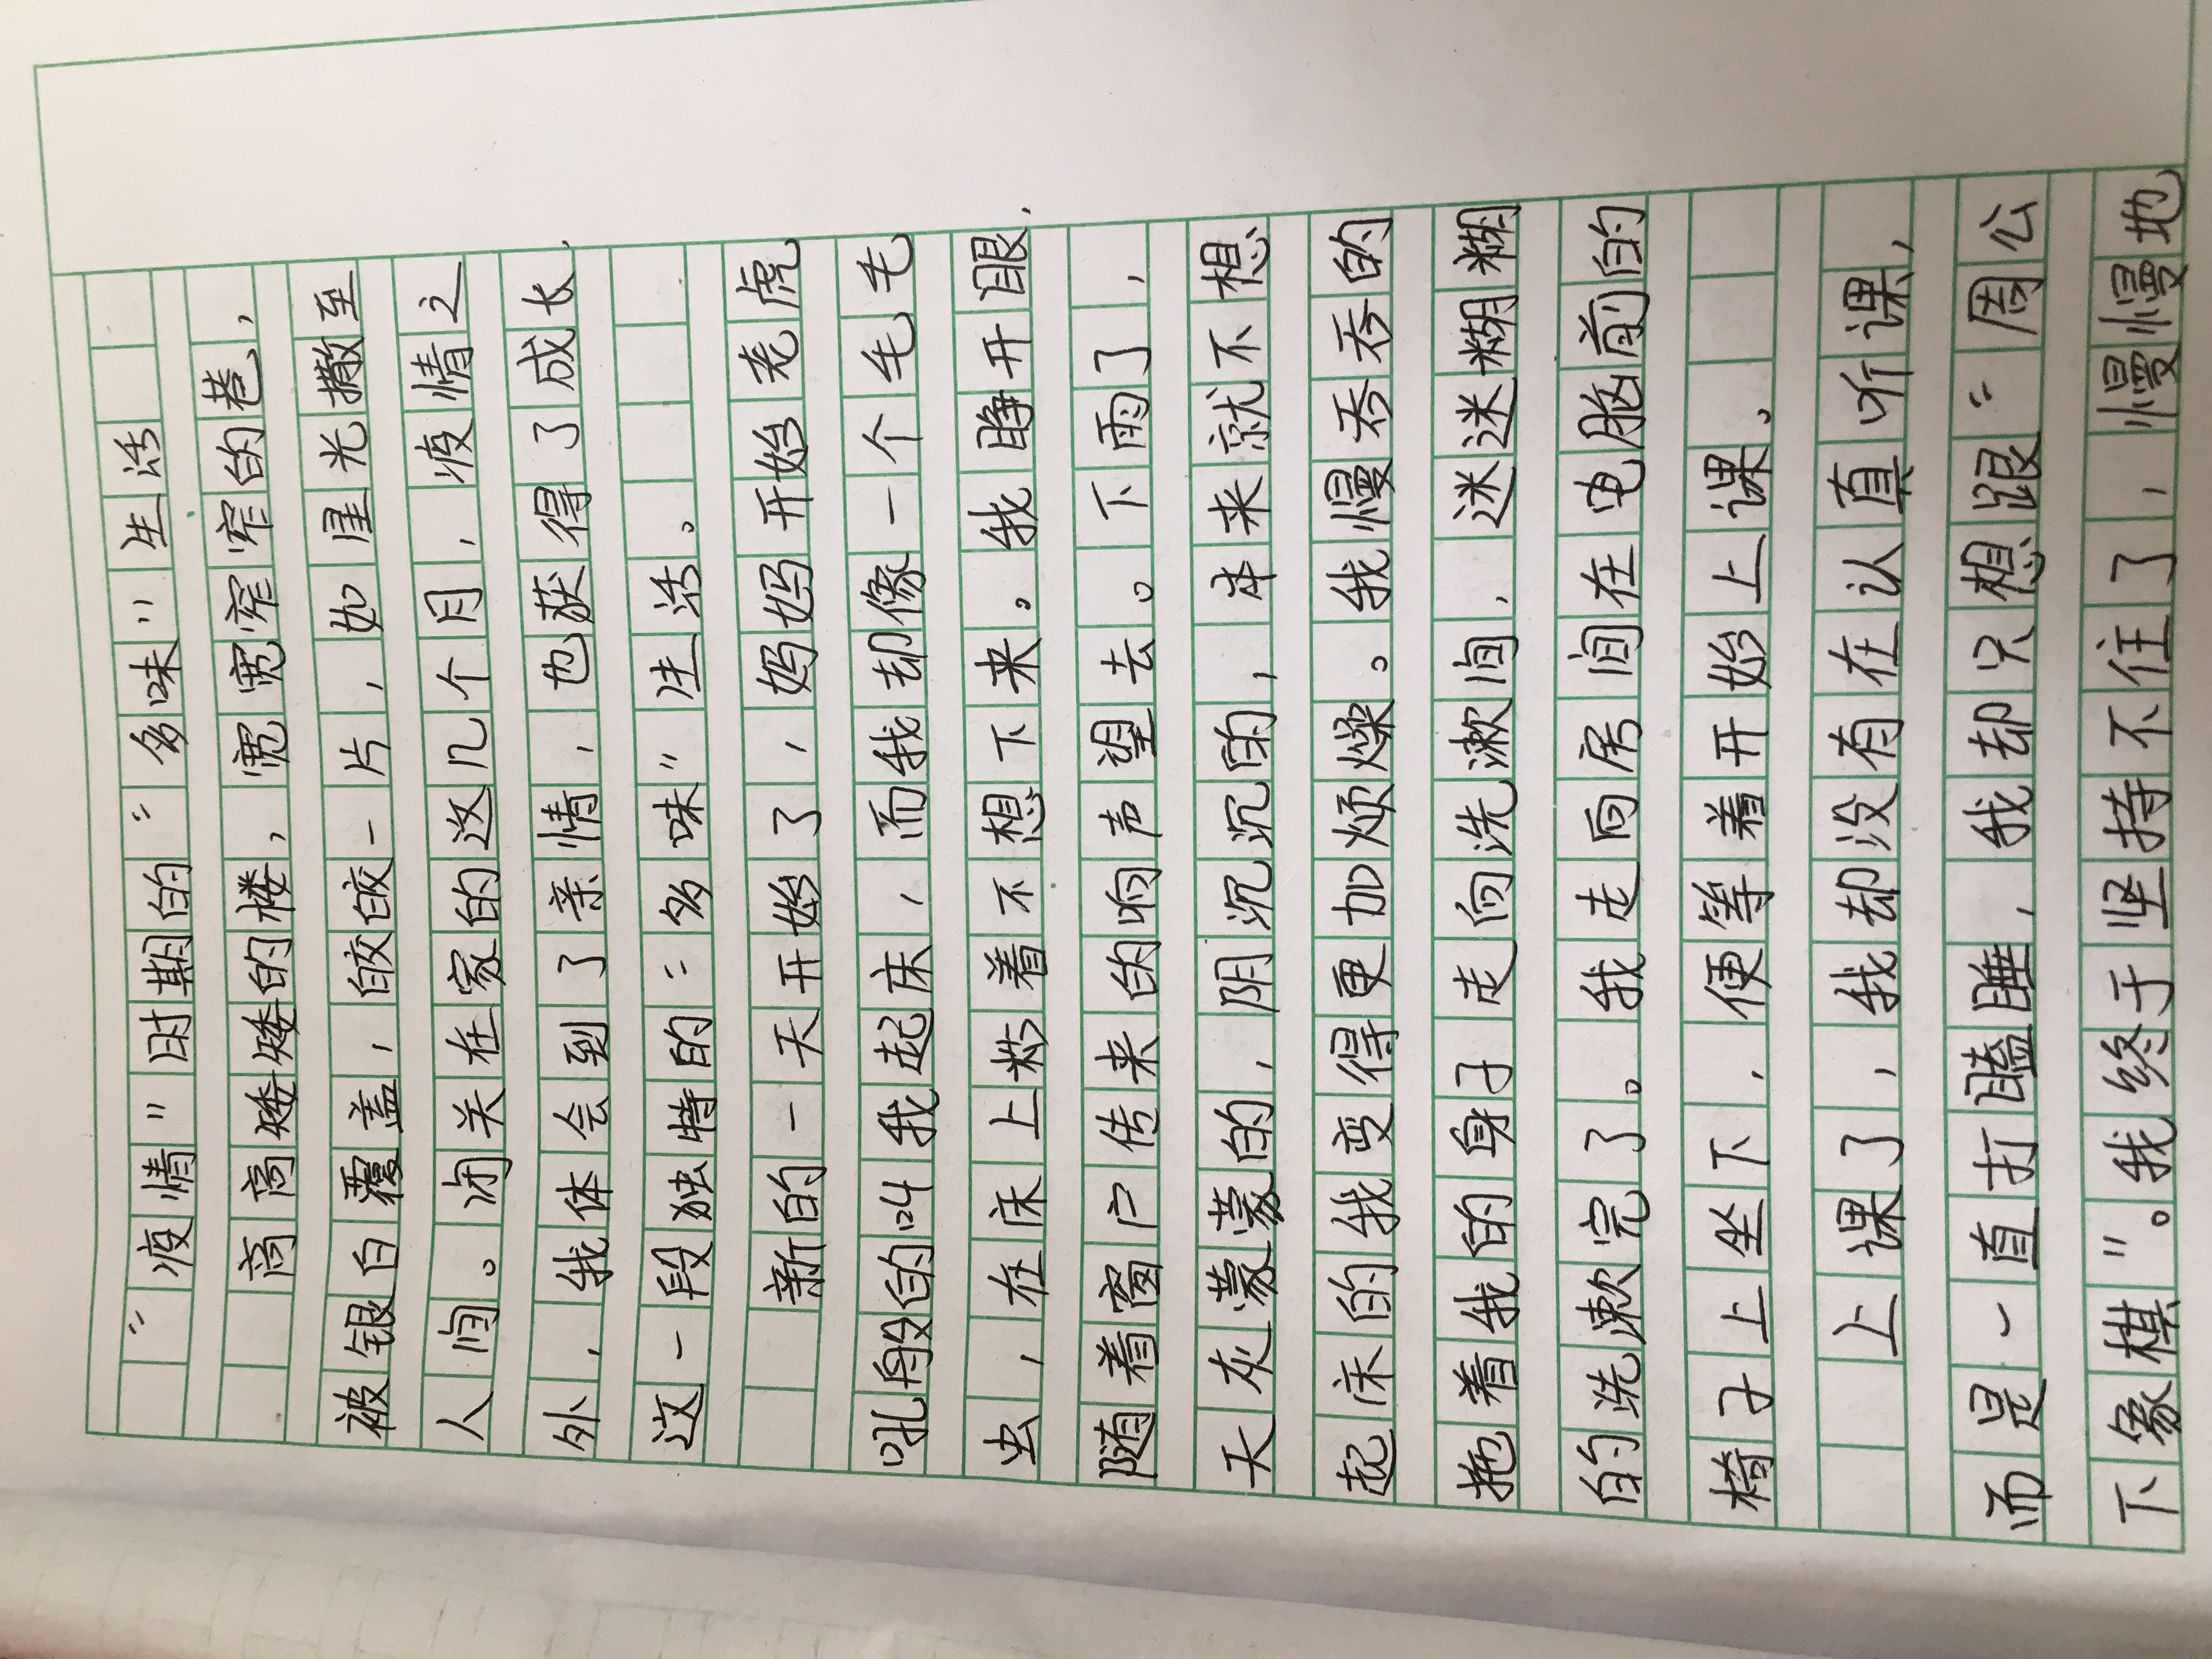 “疫情”时期的“多味”生活
高高矮矮的楼，宽宽窄窄的巷，
被银白覆盖，皎皎一片，如星光撒至
人间。闭关在家的这几个月，疫情之
外，我体会到了亲情，也获得了成长，
这一段独特的“多味”生活。
新的一天开始了，妈妈开始老虎
吼般的叫我起床，而我却像一个毛毛
虫，在床上粘着不想下来。我睁开眼，
随着窗户传来的响声望去。下雨了，
天灰濛濛的，阴沉沉的，本来就不想
起床的我变得更加烦燥。我慢吞吞的
拖着我的身子走向洗漱间，迷迷糊糊
的洗漱完了。我走向房间在电脑前的
椅子上坐下，便等着开始上课。
上课了，我却没有在认真听课，
而是一直打瞌睡，我却只想跟“周公
下象棋”。我终于坚持不住了，慢慢地